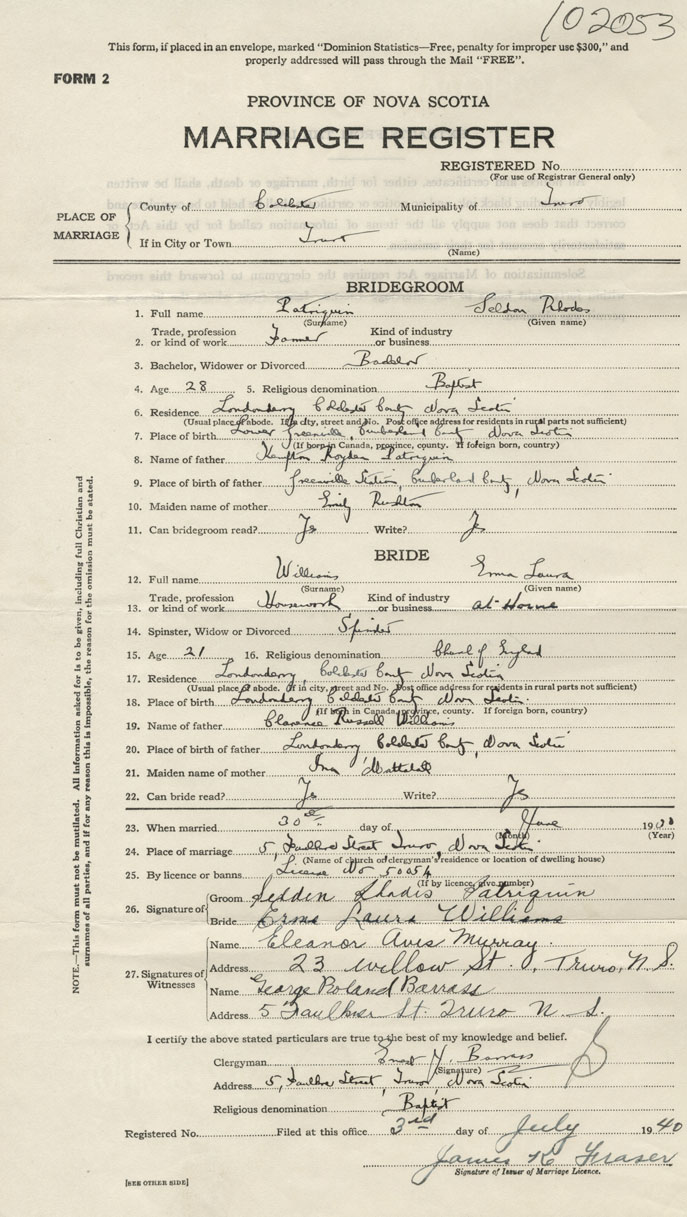 102053
This form, if placed in an envelope, marked "Dominion Statistics—Free, penalty for improper use $300," and
properly addressed will pass through the Mail "FREE".
FORM 2
PROVINCE OF NOVA SCOTIA
MARRIAGE REGISTER
REGISTERED No.
(For use of Registrar General only)
PLACE OF MARRIAGE
County of Colchester Municipality of Truro
If in City or Town Truro
(Name)
BRIDEGROOM
1. Full name Patriquin Seldon Rhodes
(Surname) (Given name)
Trade, profession Kind of industry
2. or kind of work Farmer or business
3. Bachelor, Widower or Divorced Bachelor
4. Age 28 5. Religious denomination Baptist
6. Residence Londonderry Colchester County Nova Scotia
(Usual place of abode. If a city, street and No. Post office address for residents in rural parts not sufficient)
7. Place of birth Lower Greenville, Cumberland County Nova Scotia
(If born in Canada, province, county. If foreign born, country)
8. Name of father Patriquin
9. Place of birth of father Greenville Station, Cumberland County, Nova Scotia
10. Maiden name of mother Emily Rushton
11. Can bridegroom read? Yes Write? Yes
BRIDE
12. Full name Williams Erma Laura
(Surname) (Given name)
Trade, profession Kind of industry
13. or kind of work Housework or business at Home
14. Spinster, Widow or Divorced Spinster
15. Age 21 16. Religious denomination Church of England
17. Residence Londonderry, Colchester County Nova Scotia
(Usual place of abode. If in city, street and No. Post office address for residents in rural parts not sufficient)
18. Place of birth Londonderry Colchester County Nova Scotia
(If born in Canada, province, county. If foreign born, country)
19. Name of father Clarence Russell Williams
20. Place of birth of father Londonderry Colchester County, Nova Scotia
21. Maiden name of mother Ina
22. Can bride read? Yes Write? Yes
23. When married 30th day of June 19
(Month) (Year)
24. Place of marriage 5, Faulkner Street Truro, Nova Scotia
(Name of church or clergyman's residence or location of dwelling house)
25. By licence or banns License No 5005A
(If by licence, give number)
26. Signature of Groom Seldon Patriquin
Bride Erma Laura Williams
27. Signatures of Witnesses
Name Eleanor Avis Murray.
Address 23 Willow St., Truro, N.S.
Name George Roland Barrass
Address 5 Faulkner St. Truro N. S.
I certify the above stated particulars are true to the best of my knowledge and belief.
Clergyman Barrass
(Signature)
Address 5, Faulkner Street, Truro, Nova Scotia
Religious denomination Baptist
Registered No. Filed at this office 3rd day of July 1940
James K Fraser
Signature of Issuer of Marriage Licence.
[SEE OTHER SIDE]
NOTE.—This form must not be mutilated. All information asked for is to be given, including full Christian and
surnames of all parties, and if for any reason this is impossible, the reason for the omission must be stated.